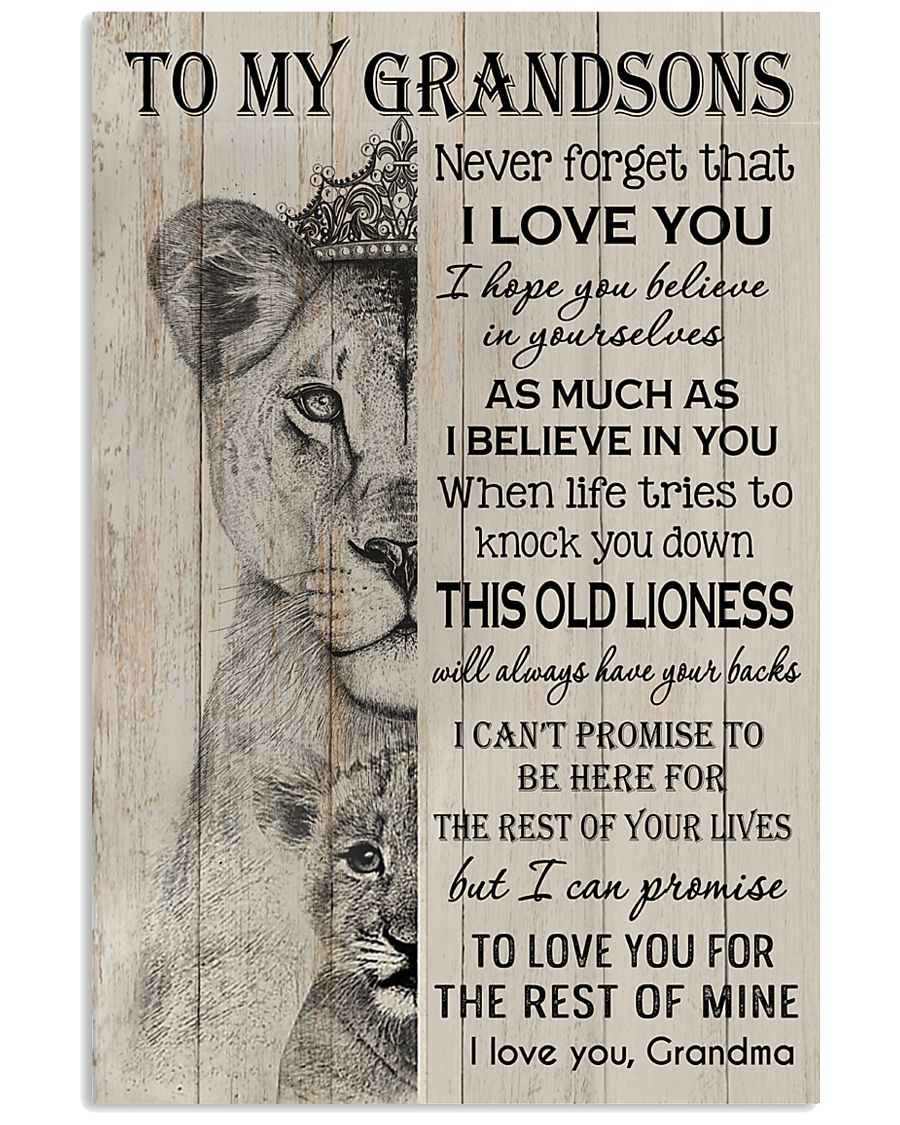 TO MY GRANDSONS
Never forget that
I LOVE YOU
I hope you believe
in yourselves
AS MUCH AS
I BELIEVE IN YOU
When life tries to
knock you down
THIS OLD LIONESS
will always have your backs
I CAN'T PROMISE TO
BE HERE FOR
THE REST OF YOUR LIVES
but I can promise
TO LOVE YOU FOR
THE REST OF MINE
I love you, Grandma